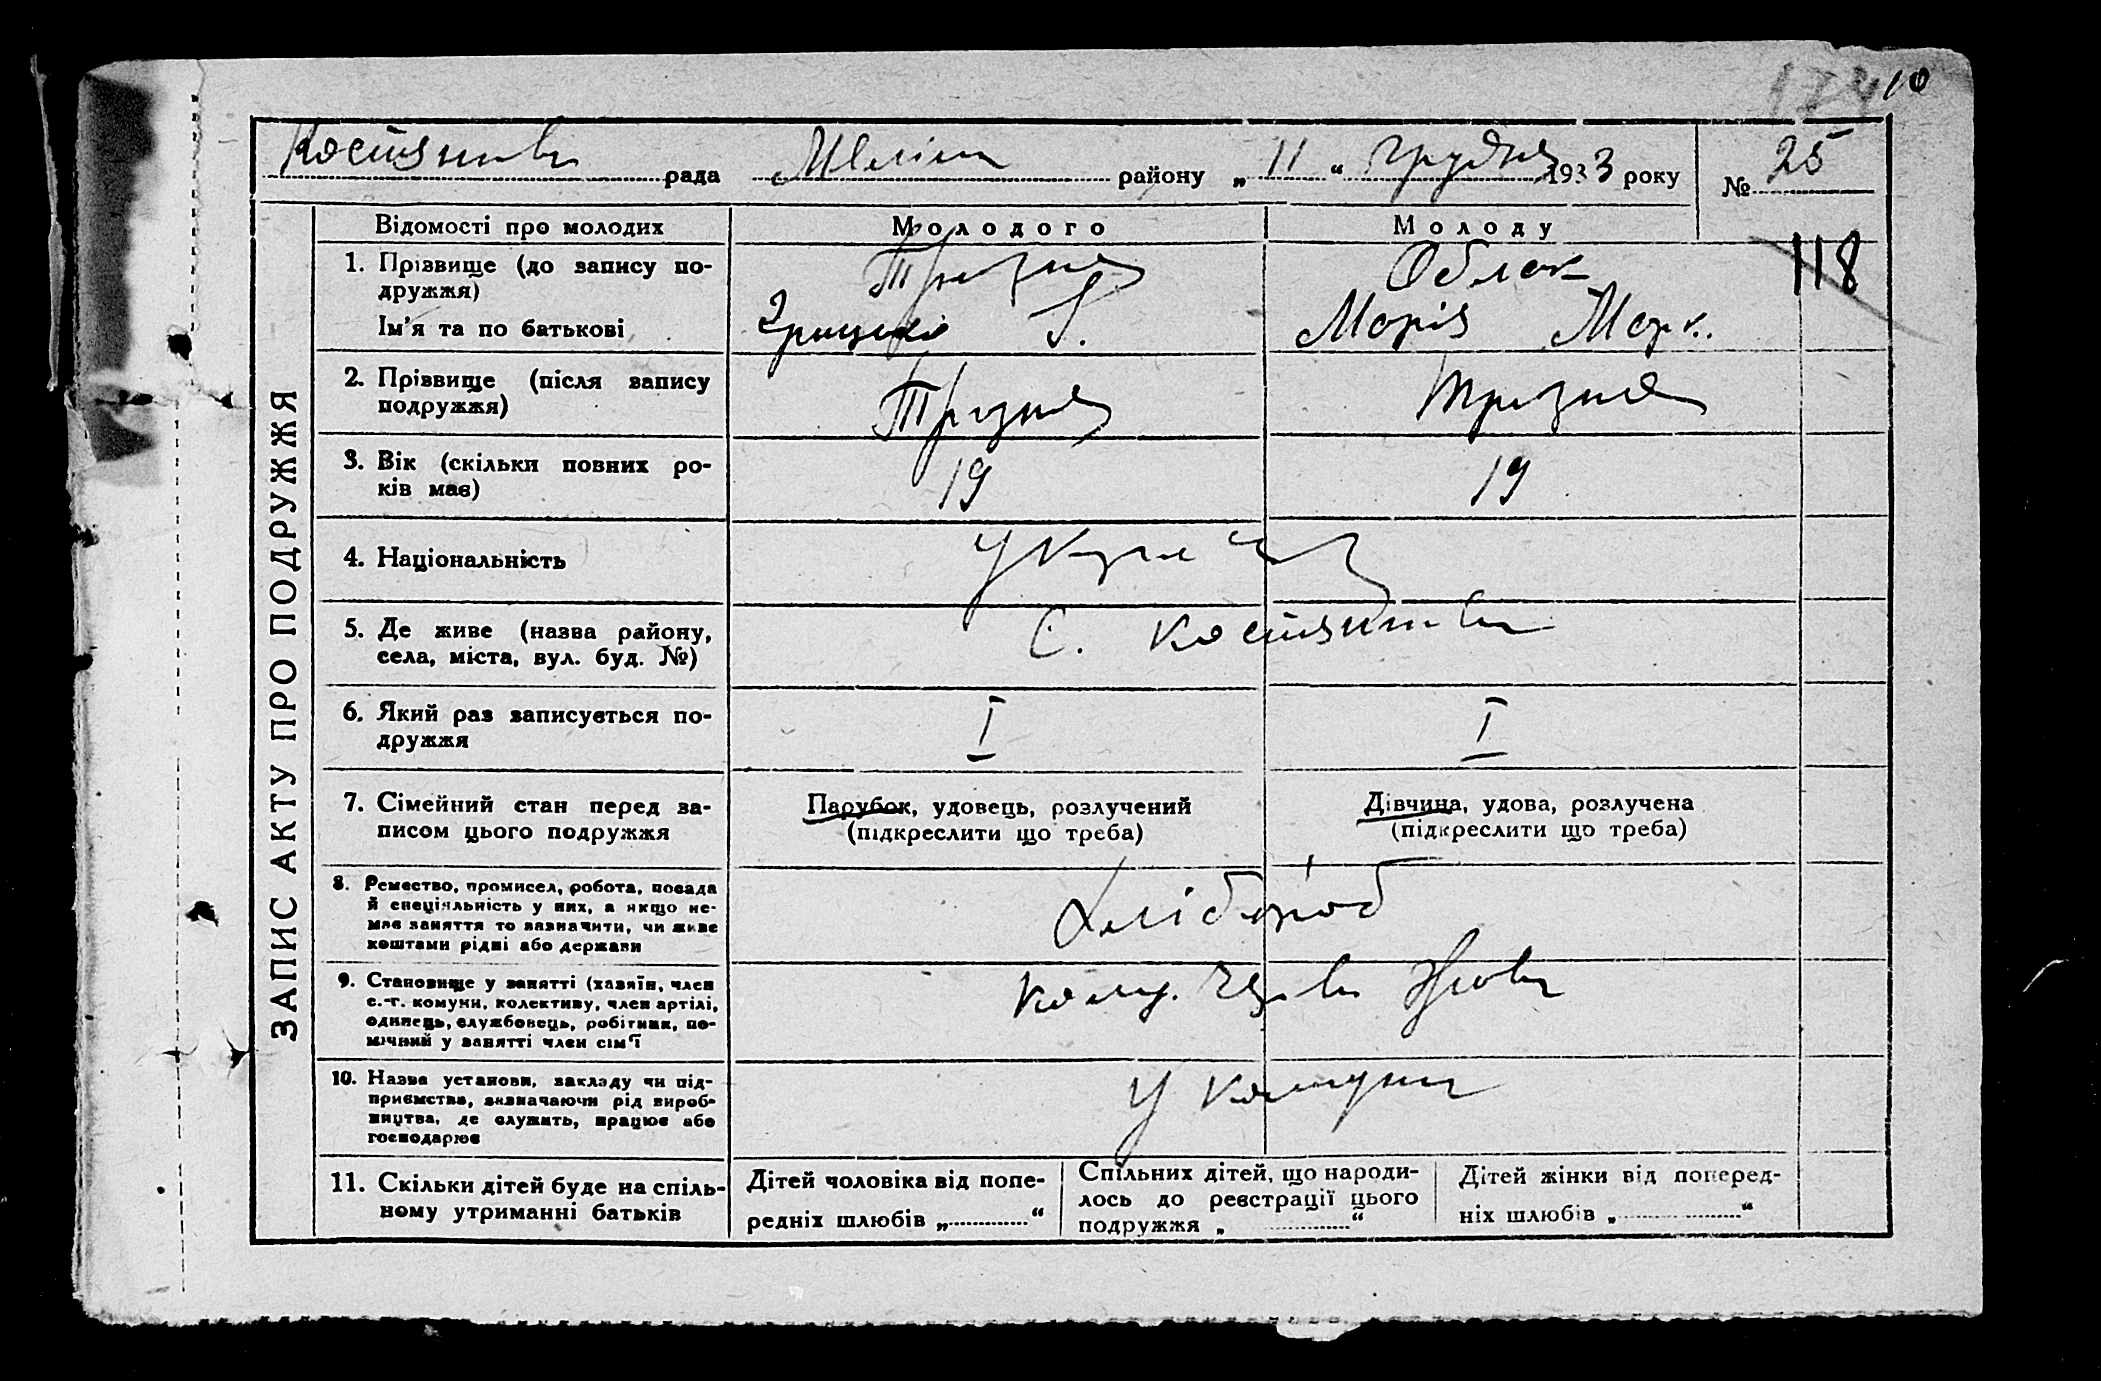 10
Костянтів рада Мелін району „ 11 “ грудня 1933 року № 25
118
ЗАПИС АКТУ ПРО ПОДРУЖЖЯ
Відомості про молодих Молодого Молоду
1. Прізвище (до запису по-
дружжя)
Тризна Облак
Ім'я та по батькові Грицько І. Марія Марк.
2. Прізвище (після запису
подружжя)
Тризна Тризна
3. Вік (скільки повних ро-
ків має)
19 19
4. Національність
5. Де живе (назва району,
села, міста, вул. буд. №)
с. Костянтів
6. Який раз записується по-
дружжя
I I
7. Сімейний стан перед за-
писом цього подружжя
Парубок, удовець, розлучений
(підкреслити що треба)
Дівчина, удова, розлучена
(підкреслити що треба)
8. Ремество, промисел, робота, посада
й спеціяльність у них, а якщо не-
має заняття то зазначити, чи живе
коштами рідні або держави
хлібороб
9. Становище у занятті (хазяїн, член
с.-г. комуни, колективу, член артілі,
одинець, службовець, робітник, по-
мічний у занятті член сім'ї
10. Назва установи, закладу чи під-
приємства, зазначаючи рід вироб-
ництва, де служить, працює або
господарює
у комуни
11. Скільки дітей буде на спіль-
ному утриманні батьків
Дітей чоловіка від попе-
редніх шлюбів „ “
Спільних дітей, що народи-
лось до реєстрації цього
подружжя „ “
Дітей жінки від поперед-
ніх шлюбів „ “